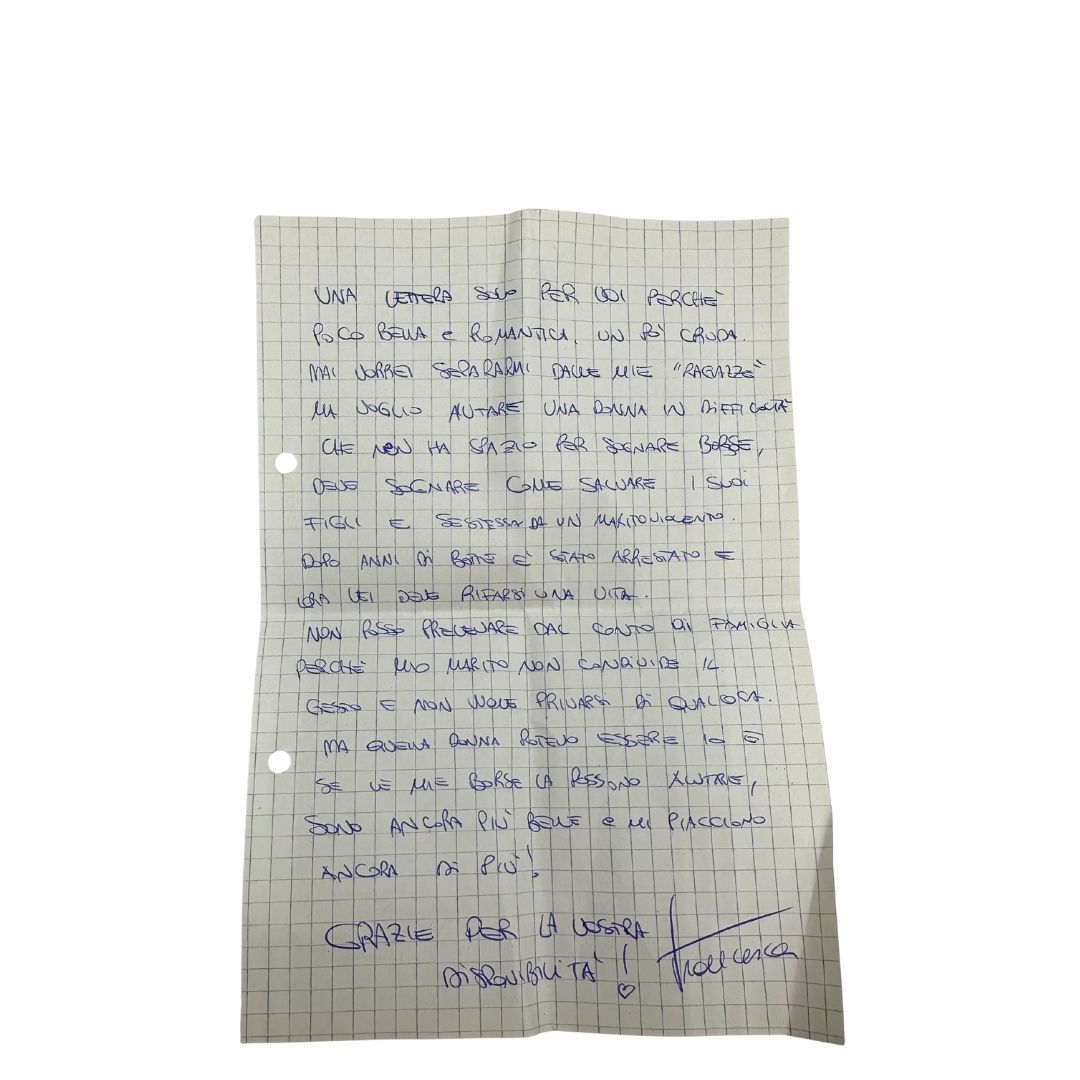 UNA LETTERA SOLO PER VOI PERCHÈ
POCO BELLA e ROMANTICA, UN PÒ CRUDA.
MAI VORREI SEPARARMI DALLE MIE "RAGAZZE"
MA VOGLIO AIUTARE UNA DONNA IN DIFFICOLTÀ
CHE NON HA SPAZIO PER SOGNARE BORSE,
DEVE SOGNARE COME SALVARE I SUOI
FIGLI E SE STESSA DA UN MARITO VIOLENTO.
DOPO ANNI DI BOTTE È STATO ARRESTATO E
ORA LEI DEVE RIFARSI UNA VITA.
NON POSSO PRELEVARE DAL CONTO DI FAMIGLIA
PERCHÈ MIO MARITO NON CONDIVIDE IL
GESTO E NON VUOLE PRIVARSI DI QUALCOSA.
MA QUELLA DONNA POTEVO ESSERE IO E
SE LE MIE BORSE LA POSSONO AIUTARE,
SONO ANCORA PIÙ BELLE e MI PIACCIONO
ANCORA DI PIÙ!
GRAZIE PER LA VOSTRA
DISPONIBILITÀ! Francesca